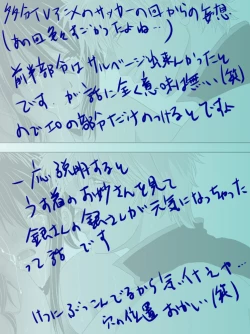 タタタTVアニメのサッカーの回からの妄想
(あの回色々すごかったよね…)
前半部分はサルベージ出来んかったと
です。が話に全く意味は無い(殴)
のでエロの部分だけのっけるとですよ
一応説明すると
うす着のお妙さんを見て
銀さんの銀さんしが元気になっちゃった
って話です
けつにぶっこんでるから気に
穴の位置おかしい(殴)